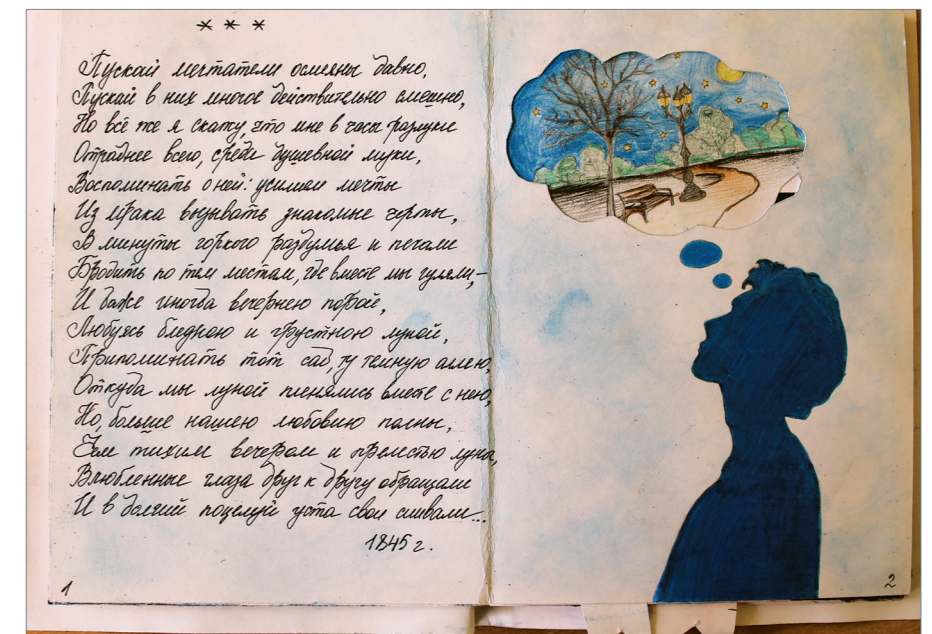 * * *
Пускай мечтатели осмеяны давно,
Пускай в них многое действительно смешно,
Но всё же я скажу, что мне в часы разлуки
Отраднее всего, среди душевной муки,
Воспоминать о ней: усилием мечты
Из мрака вызывать знакомые черты,
В минуты горького раздумья и печали
Бродить по тем местам, где вместе мы гуляли, –
И даже иногда вечернею порой,
Любуясь бледною и грустною луной,
Припоминать тот сад, ту тёмную аллею,
Откуда мы луной пленялись вместе с нею,
Но, больше нашею любовию полны,
Чем тихим вечером и прелестью луны,
Влюбленные глаза друг к другу обращали
И в долгий поцелуй уста свои сливали...
1845 г.
1
2